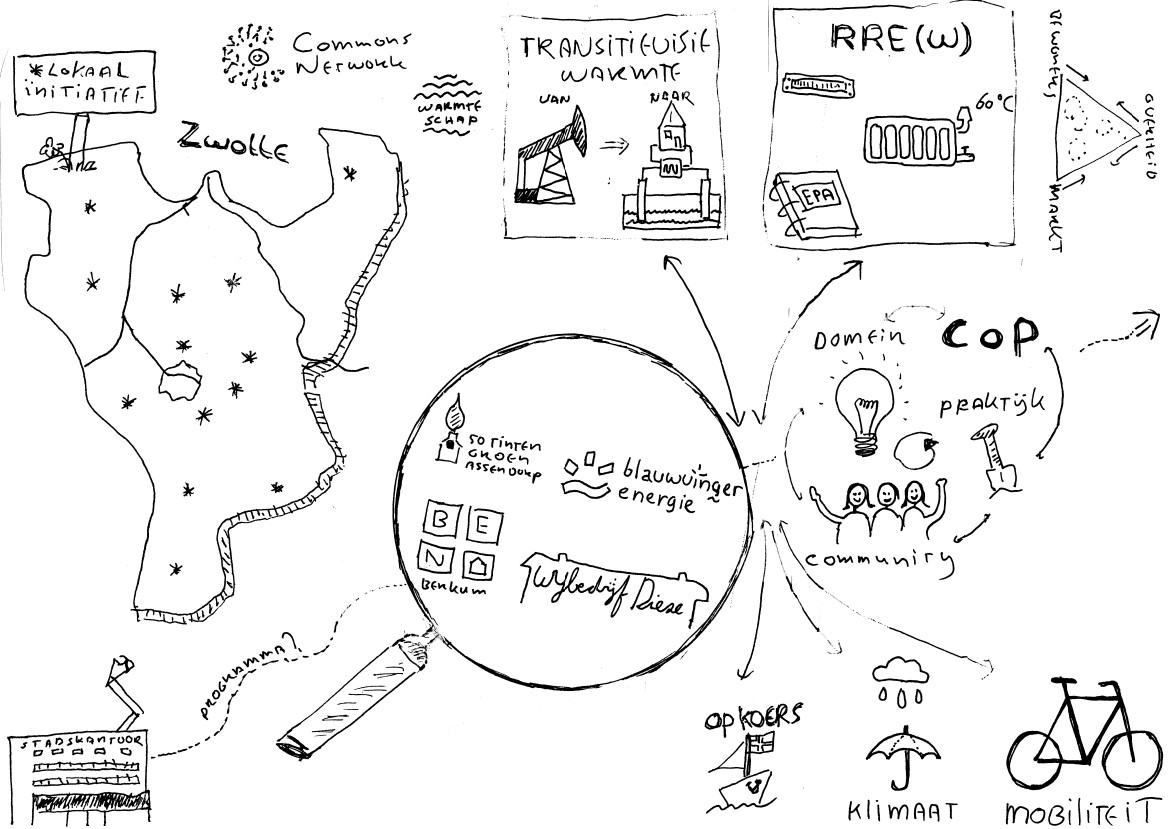 *LOKAAL
INITIATIEF
COMMONS
NETWORK
WARMTE
SCHAP
ZWOLLE
TRANSITIEVISIE
WARMTE
VAN
NAAR
RRE(W)
60°C
EPA
BEWONERS
OVERHEID
MARKT
DOMEIN
COP
PRAKTIJK
COMMUNITY
50 TINTEN
GROEN
ASSENDORP
blauwvinger
energie
B E
N
BERKUM
Wijbedrijf Dieze
PROGRAMMA?
STADSKANTOOR
OP KOERS
KLIMAAT
MOBILITEIT